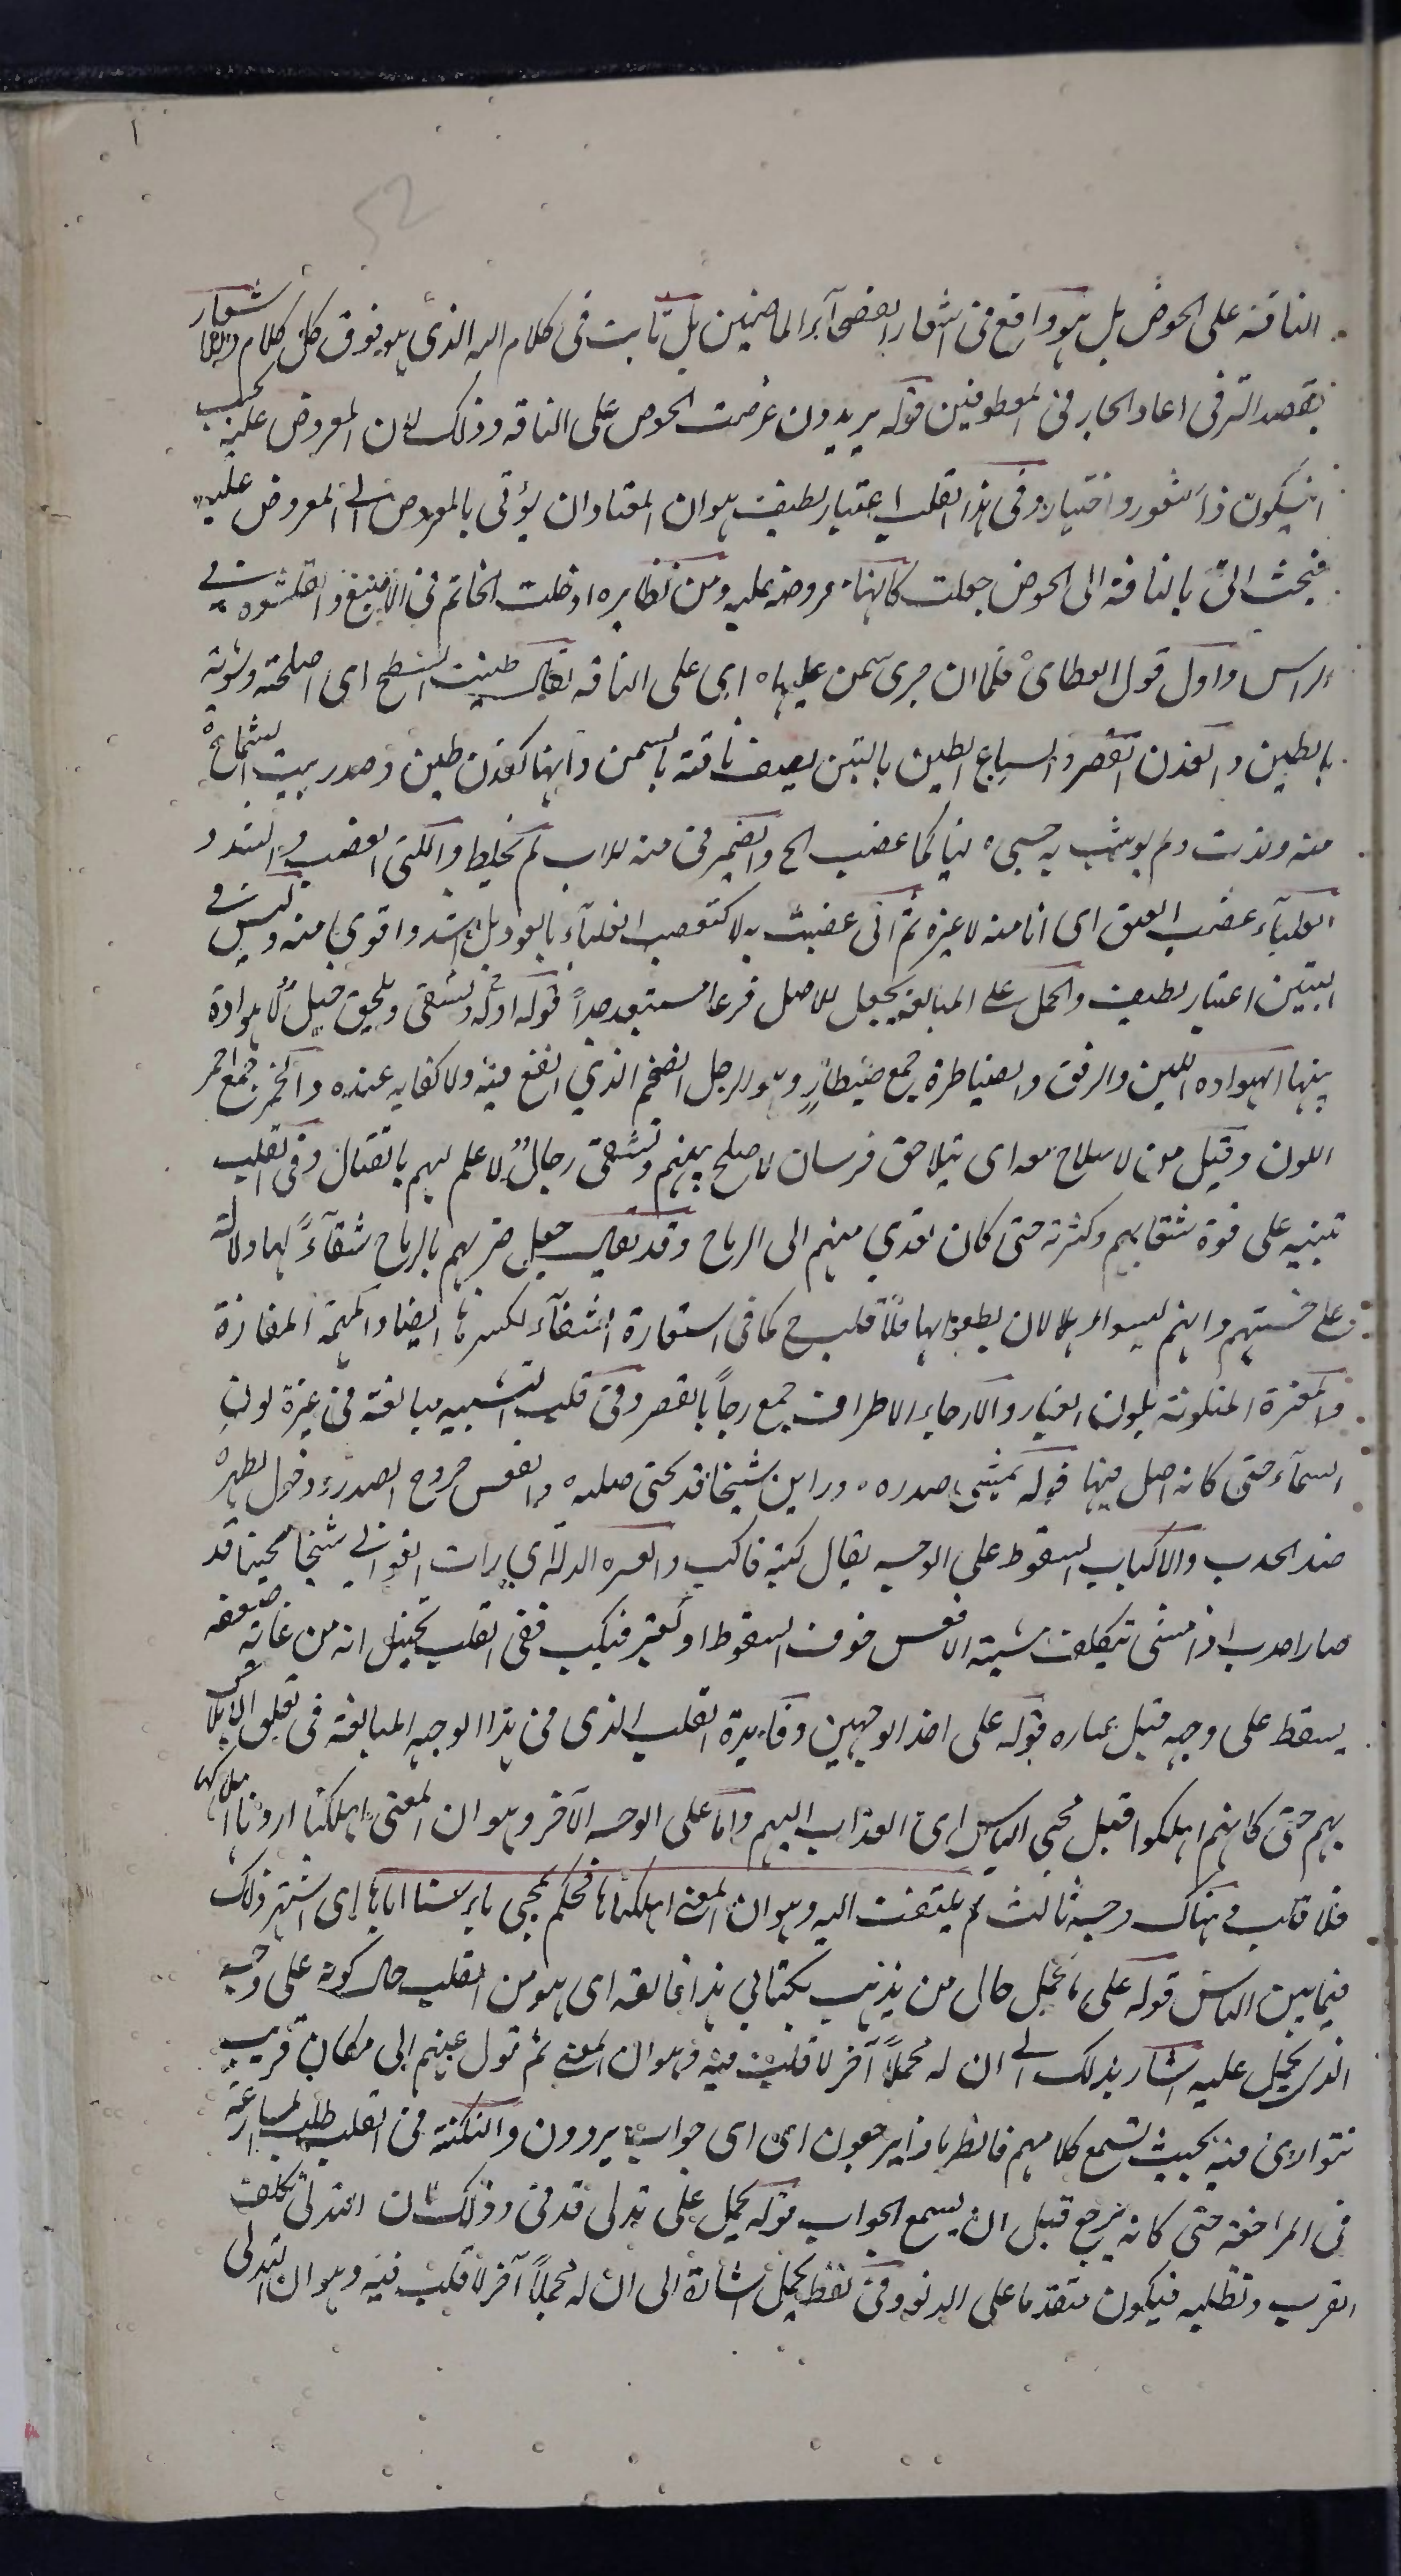 52
الناقة على الحوض بل هو واقع فى اشعار الفصحآء الماضين بل ثابت فى كلام الله الذى هو فوق كل كلام واشعار
بقصد الترقى اعاد الجار فى المعطوفين قوله يريدون عرضت الحوض على الناقه وذلك لان المعروض عليه يجب
ان يكون ذا شعور واختيار وفى هذا القلب اعتبار لطيف هو ان المعتاد ان يؤتى بالمعروض الى المعروض عليه
فحيث اتى بالناقة الى الحوض جعلت كانها معروضه عليه ومن نظايره ادخلت الخاتم فى الاصبع والقلنسوه فى
الراس واول قول القطامى فلما ان جرى سمن عليها ه اى على الناقه يقال طينت السطح اى اصلحته وسويته
بالطين والفدن القصر والسياع الطين بالتبن يصف ناقته بالسمن وانها كفدن طين وصدر بيت الشماخ
منه ولدت ولم يوشب به حسبى ه ليا كما عصب الح والضمير فى منه للاب لم يخلط واللى العصب والشد و
العلبآء عصب العنق اى انا منه لا غيره ثم انى عصبت به لا كتعصب العلبآء بالعود بل اشد واقوى منه وليس فى
البيتين اعتبار لطيف والحمل على المبالغة بجعل للاصل فرعا مستبعد جداً قوله اوله وتشقى وتلحق خيل لا هوادة
بينها الهواده اللين والرفق والضياطرة جمع ضيطارٍ وهو الرجل الضخم الذى لا نفع فيه ولا كفايه عنده والحمر جمع احمر
اللون وقيل من لا سلاح معه اى يتلاحق فرسان لا صلح بينهم وتشقى رجالٌ لا علم لهم بالقتال وفى القلب
تنبيه على قوة شقابهم وكثرته حتى كان تعدى منهم الى الرماح وقد يقال جعل ضربهم بالرماح شقآءً لها دلالة
على خستهم وانهم ليسوا اهلا لان يطعنوا بها فلا قلب ح كما فى استعارة الشقآء لكسرها ايضا والمهمه المفازة
والمغبرة المتلونة بلون الغبار والارجاء الاطراف جمع رجاً بالقصر وفى قلب التشبيه مبالغة فى غبرة لون
السمآء حتى كانه اصل فيها قوله يمشى صدره ه وراين شيخا قد تحنى صلبه ه والقعس خروج الصدر ودخول الظهر
ضد الحدب والاكباب السقوط على الوجه يقال كبه فاكب والعسره الدلة اى رأت الغوانى شيخا محنيا قد
صار احدب اذا مشى تيكلف مشية الاقعس خوف السقوط او يعثر فيكب ففى القلب تخييل انه من غاية ضعفه
يسقط على وجهه قبل عثاره قوله على احد الوجهين وفايدة القلب الذى فى هذا الوجه المبالغة فى تعلق الاهلاك
بهم حتى كانهم اهلكوا قبل مجى الباس اى العذاب اليهم واما على الوجه الآخر وهو ان المعنى اهلكنا اردنا اهلاكها
فلا قلب وهناك وجه ثالث لم يلتفت اليه وهو ان المعنى اهلكناها فحكم بمجى باسنا اياها اى اشتهر ذلك
فيما بين الناس قوله على ما يحمل حال من يذهب بكتابى هذا فالقه اى هو من القلب حال كونه على وجه
الذى يحمل عليه اشار بذلك الى ان له محملاً آخر لا قلب فيه وهو ان المعنى ثم تول عنهم الى مكان قريب
تتوارى فيه بحيث تسمع كلامهم فانظر ماذا يرجعون اى اى جواب يردون والنكتة فى القلب طلب المسارعة
فى المراجعة حتى كانه يرجع قبل ان يسمع الجواب قوله يحمل على تدلى فدنى وذلك لان التدلى تكلف
القرب وتطلبه فيكون متقدما على الدنو وفى لفظ يحمل اشارة الى ان له محملاً آخر لا قلب فيه وهو ان التدلى